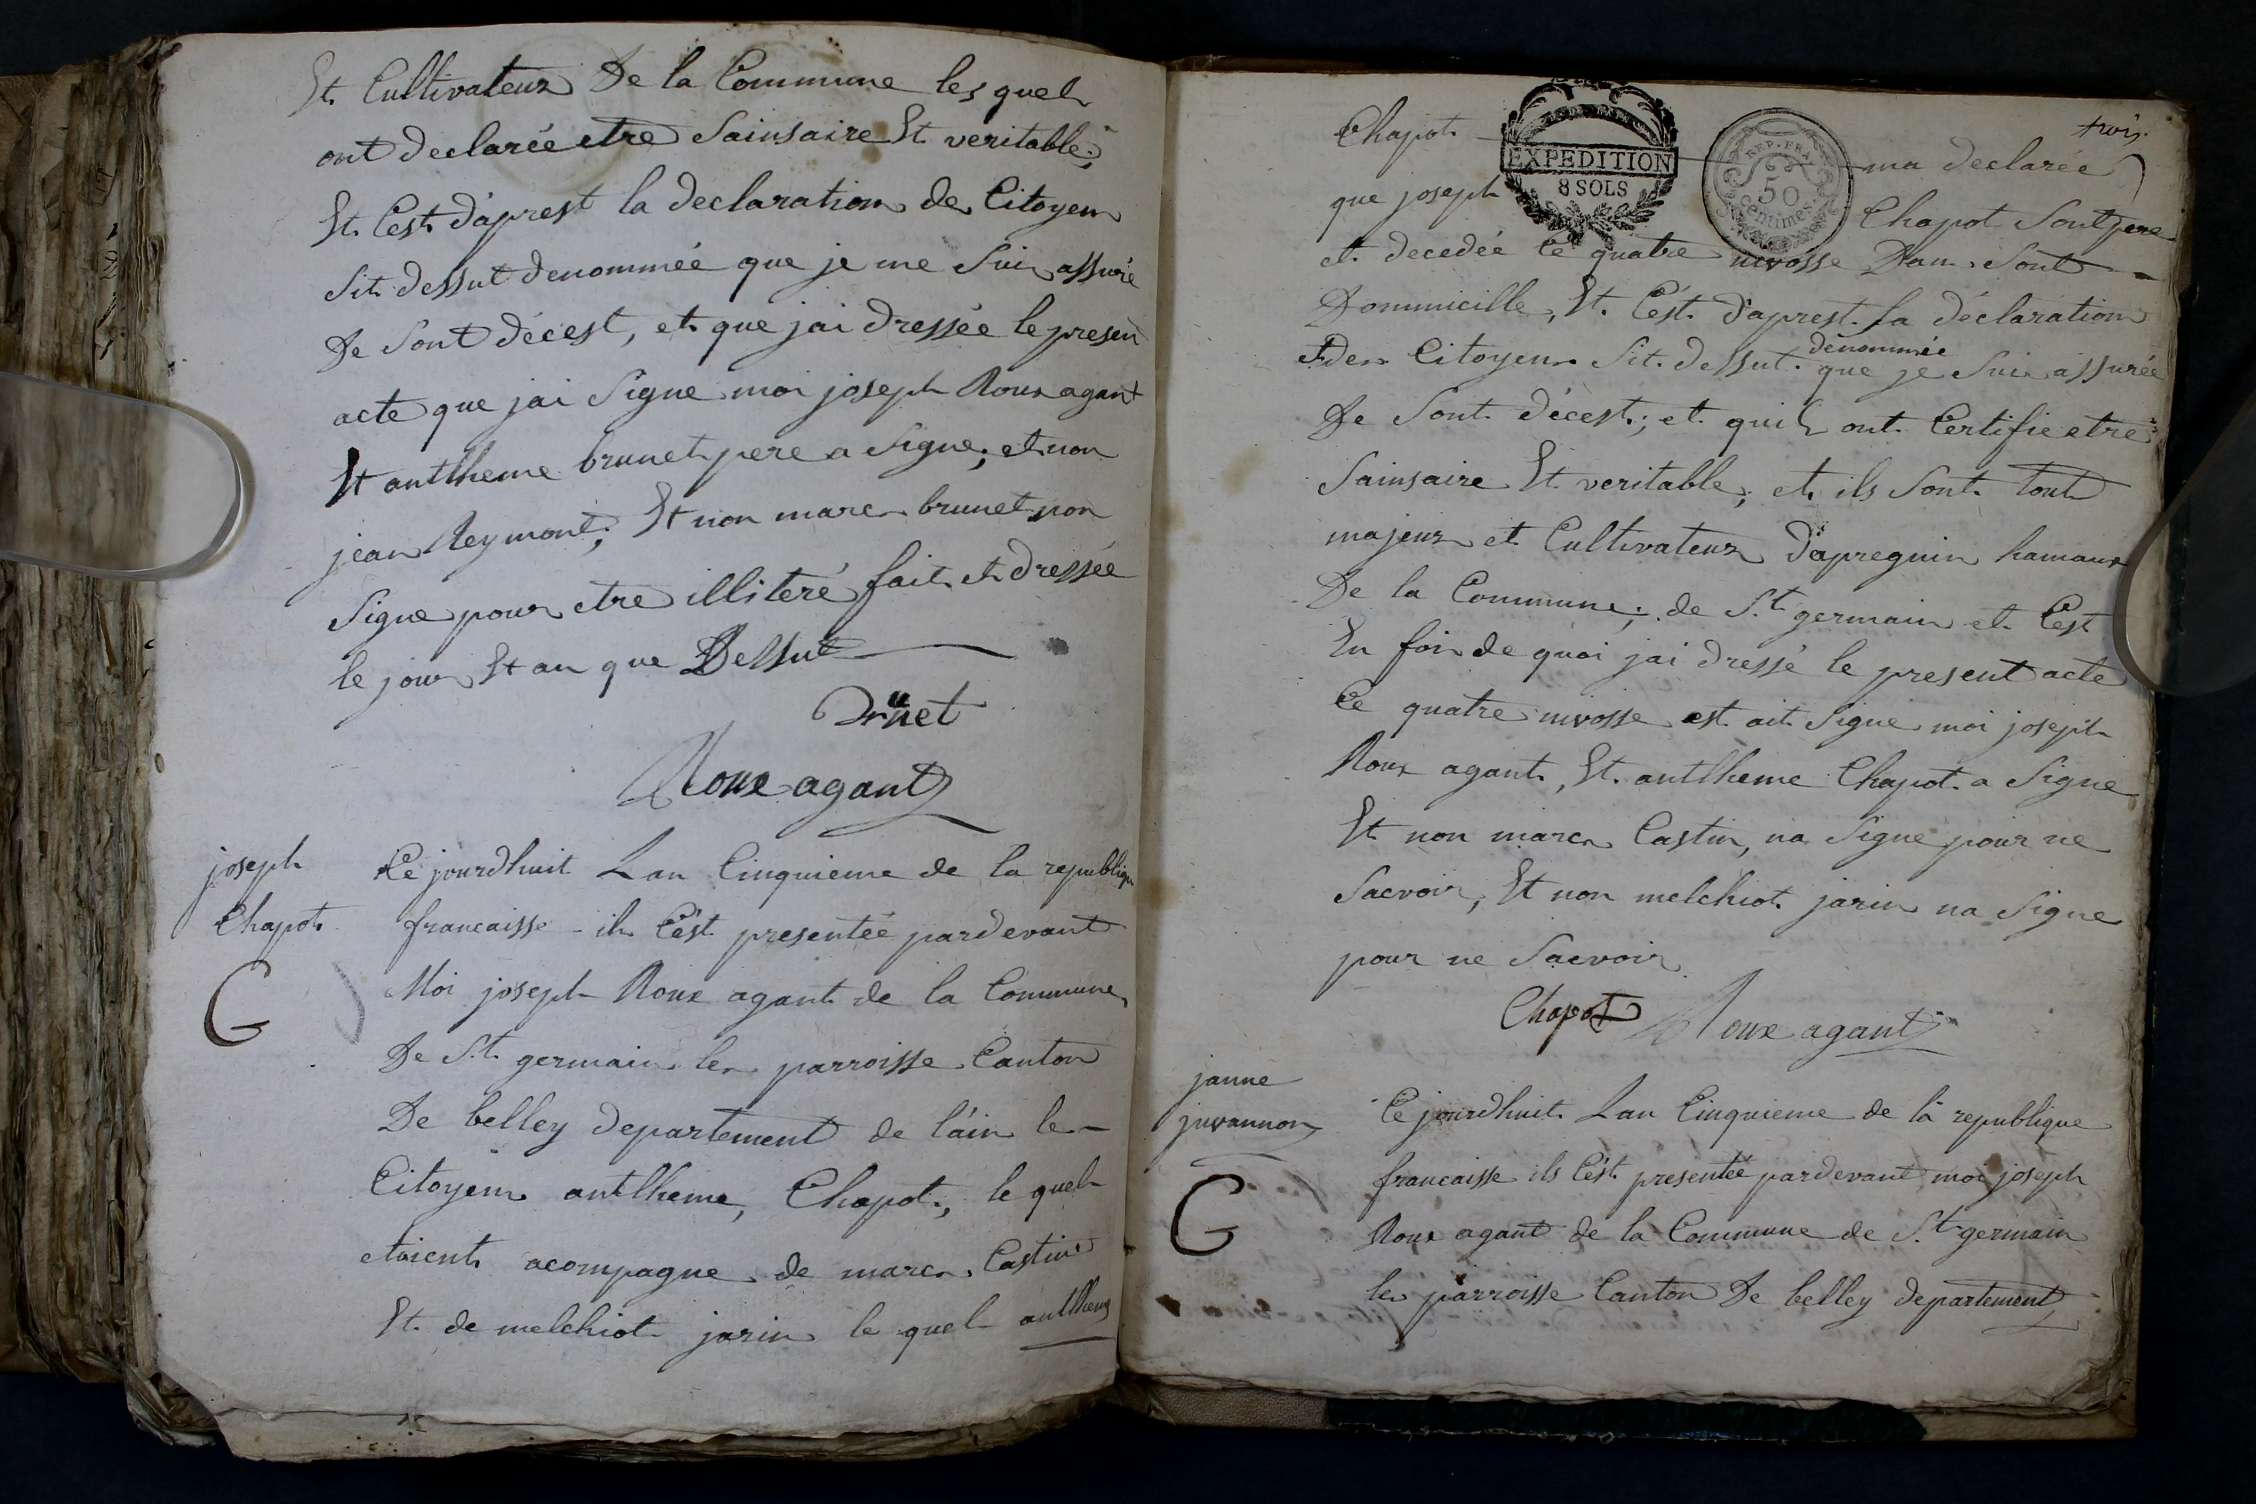 Et Cultivateur De la Commune les quel
ont declarée etre Sainsaire Et veritable;
Et C'est d'aprest la declaration de Citoyen
Sit dessut denommée que je me suis assuré
De Sont décest, et que jai dressée le presen
acte que jai Signe moi joseph Roux agant
Et antlheme brunet pere a Signe; et non
jean Reymont; Et non marc brunet non
Signe pour etre illiteré fait et dressée
le jour Et an que Dessut
Roux agant
joseph
Chapot
G
Ce jourdhuit Lan Cinquieme de la republique
francaisse il C'ést presentée pardevant
Moi joseph Roux agant de la Commune
De St. germain les parroisse Canton
De belley departement de l'ain le
Citoyen antlheme, Chapot, le quel
etoient acompagne de marc Castin
Et de melchiot jarin le quel antlheme
trois
Chapot ma declarée
EXPEDITION
8 SOLS
REP. FRA.
50
centimes
que joseph Chapot Sont pere
et decedée le quatre nivosse Dan Sont
Dommicille, Et C'ést d'aprest la déclaration
den Citoyen Sit dessut dénommée que je suis assurée
De Sont décest; et quil ont Certifie etre
Sainsaire Et veritable; et ils Sont tout
majeur et Cultivateur d'apregnin hamaux
De la Commune; de St. germain et C'est
En foi de quoi jai dressé le present acte
Ce quatre nivosse est ait Signe moi joseph
Roux agant, Et antlheme Chapot a Signe
Et non marc Castin, na Signe pour ne
Sacvoir, Et non melchiot jarin na Signe
pour ne Sacvoir
Chapot Roux agant
janne
juvannon
G
Ce jourdhuit Lan Cinquieme de la republique
francaisse ils C'ést presentée pardevant moi joseph
Roux agant de la Commune de St. germain
les parroisse Canton De belley departement